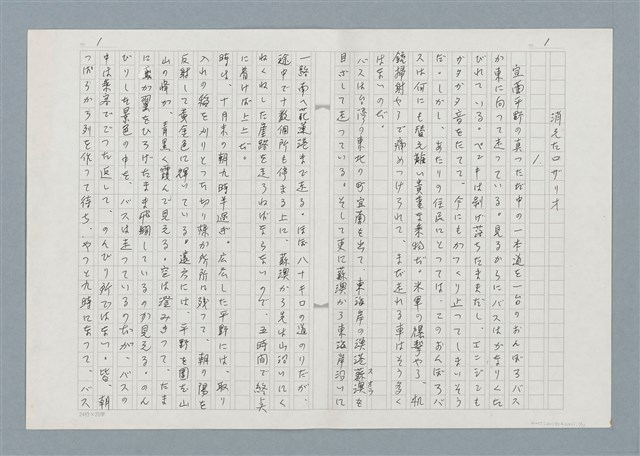 1
消えたロザリオ
1
宜蘭平野の真っただ中の一本道を一台のおんぼろバス
が東に向って走っている。見るからにバスはかなりくた
びれている。ペンキは剥げ落ちたままだし、エンジンも
ガタガタ音をたてて、今にもがっくり止ってしまいそう
だ。しかし、あたりの住民にとっては、このおんぼろバ
スは何にも替え難い貴重な乗物だ。米軍の爆撃やら、机
銃掃射やらで痛めつけられて、まだ走れる車はそう多く
はないのだ。
バスは台湾の東北の町宜蘭を出て、東海岸の漁港蘇澳を
スオウ
目ざして走っている。そして更に蘇澳から東海岸沿いに
1
一路南へ花蓮港まで走る。ほぼ八十キロの道のりだが、
途中で十数個所も停まる上に、蘇澳から先は山沿いにく
ねくねした崖路を走らねばならないので、五時間で終点
に着けば上上だ。
時は、十月末の朝九時半過ぎ。広広した平野には、取り
入れの稲を刈りとった切り株が所所に残って、朝の陽を
反射して黄金色に輝いている。遠方には、平野を囲む山
山の峰が、青黒く霞んで見える。空は澄みきって、たま
に鳥が翼をひろげたまま飛翔しているのが見える。のん
びりした景色の中を、バスは走っているのだが、バスの
中は乗客でごった返して、のんびり所ではない。皆、朝
っぱらから列を作って待ち、やっと九時になって、バス